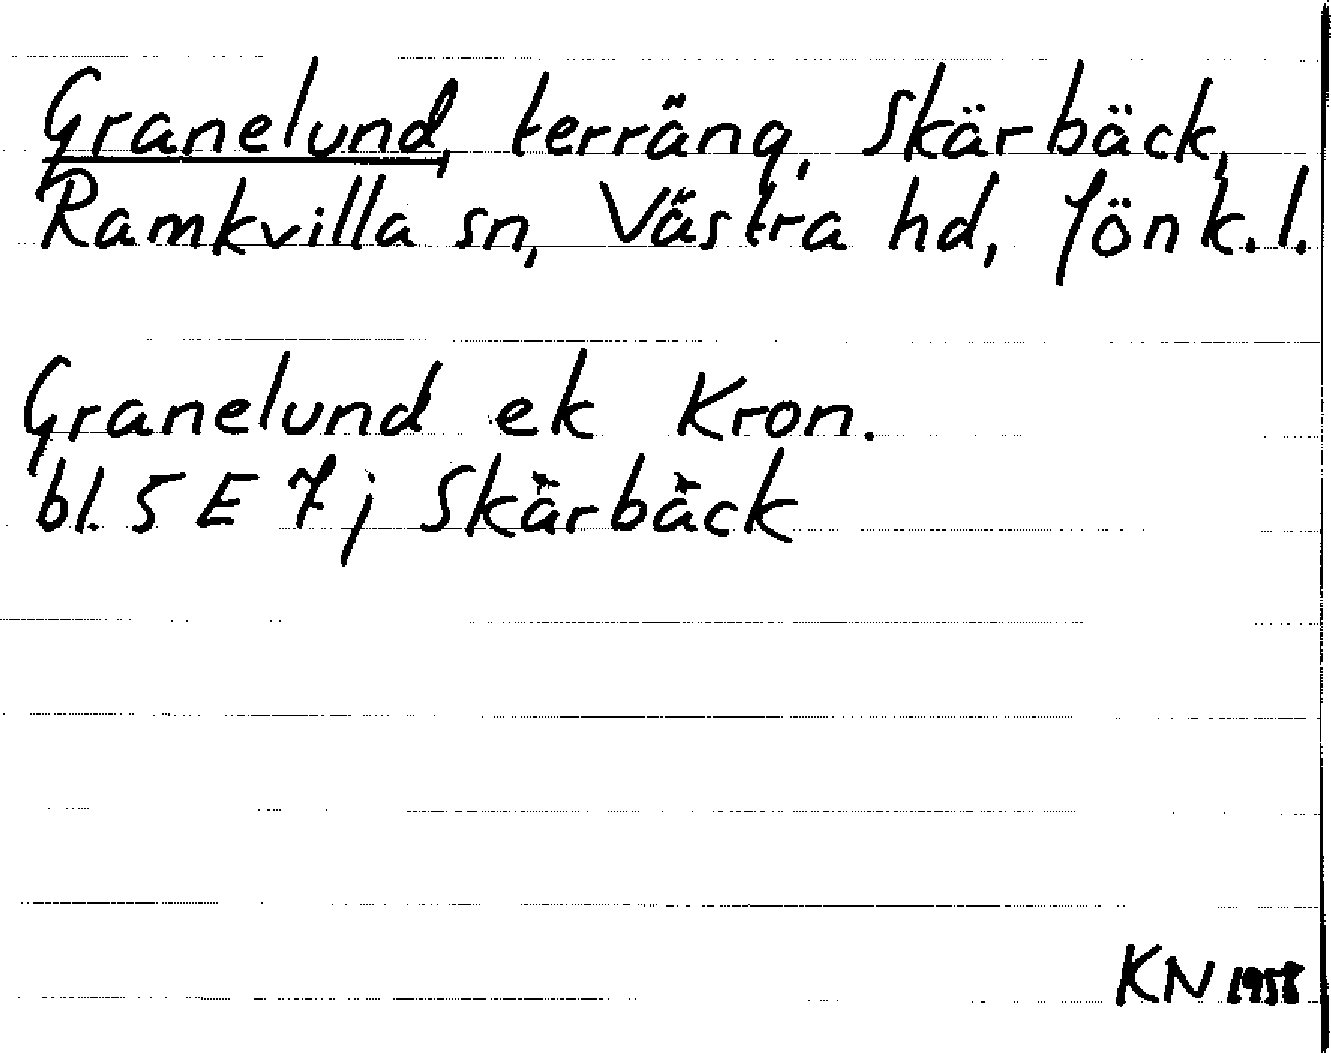 Granelund, terräng, Skärbäck,
Ramkvilla sn, Västra hd, Jönk. l.
Granelund ek Kron.
bl. 5 E 7 j Skärbäck
KN 1958